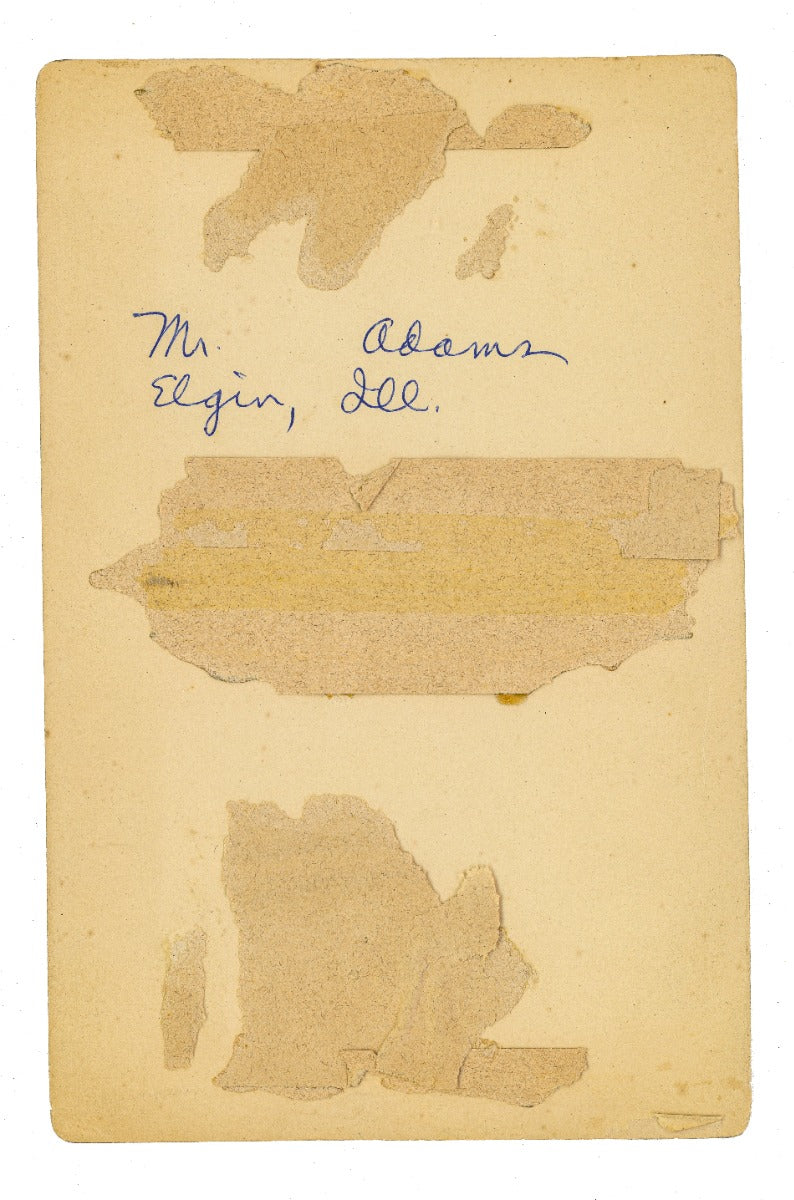 Mr. Adams
Elgin, Ill.